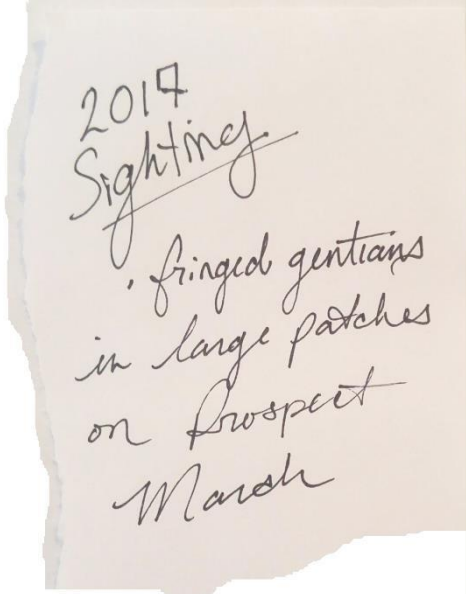 2017
Sighting
· fringed gentians
in large patches
on Prospect
Marsh